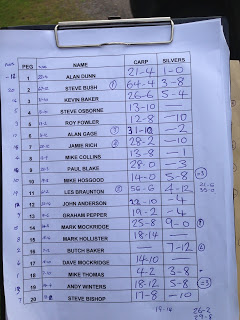 PEG NAME CARP SILVERS
1 ALAN DUNN 21-4 1-0
2 STEVE BUSH ① 64-4 3-8
3 KEVIN BAKER 26-6 5-4
4 STEVE OSBORNE 13-10
5 ROY FOWLER 12-8 -10
6 ALAN GAGE ③ 31-12 -2
7 JAMIE RICH ④ 28-2 -10
8 MIKE COLLINS 13-8 -1
9 PAUL BLAKE 28-0 -3
10 MIKE HOSGOOD 14-0 5-8 =3
11 LES BRAUNTON ② 56-6 4-12
12 JOHN ANDERSON -10 -4
13 GRAHAM PEPPER 19-2 -4
14 MARK MOCKRIDGE 25-8 9-0
15 MARK HOLLISTER 18-14 —
16 BUTCH BAKER — 7-12
17 DAVE MOCKRIDGE 14-10 —
18 MIKE THOMAS 4-2 3-8
19 ANDY WINTERS 18-12 5-8 =3
20 STEVE BISHOP 17-8 -10
19-14 26-2
29-8